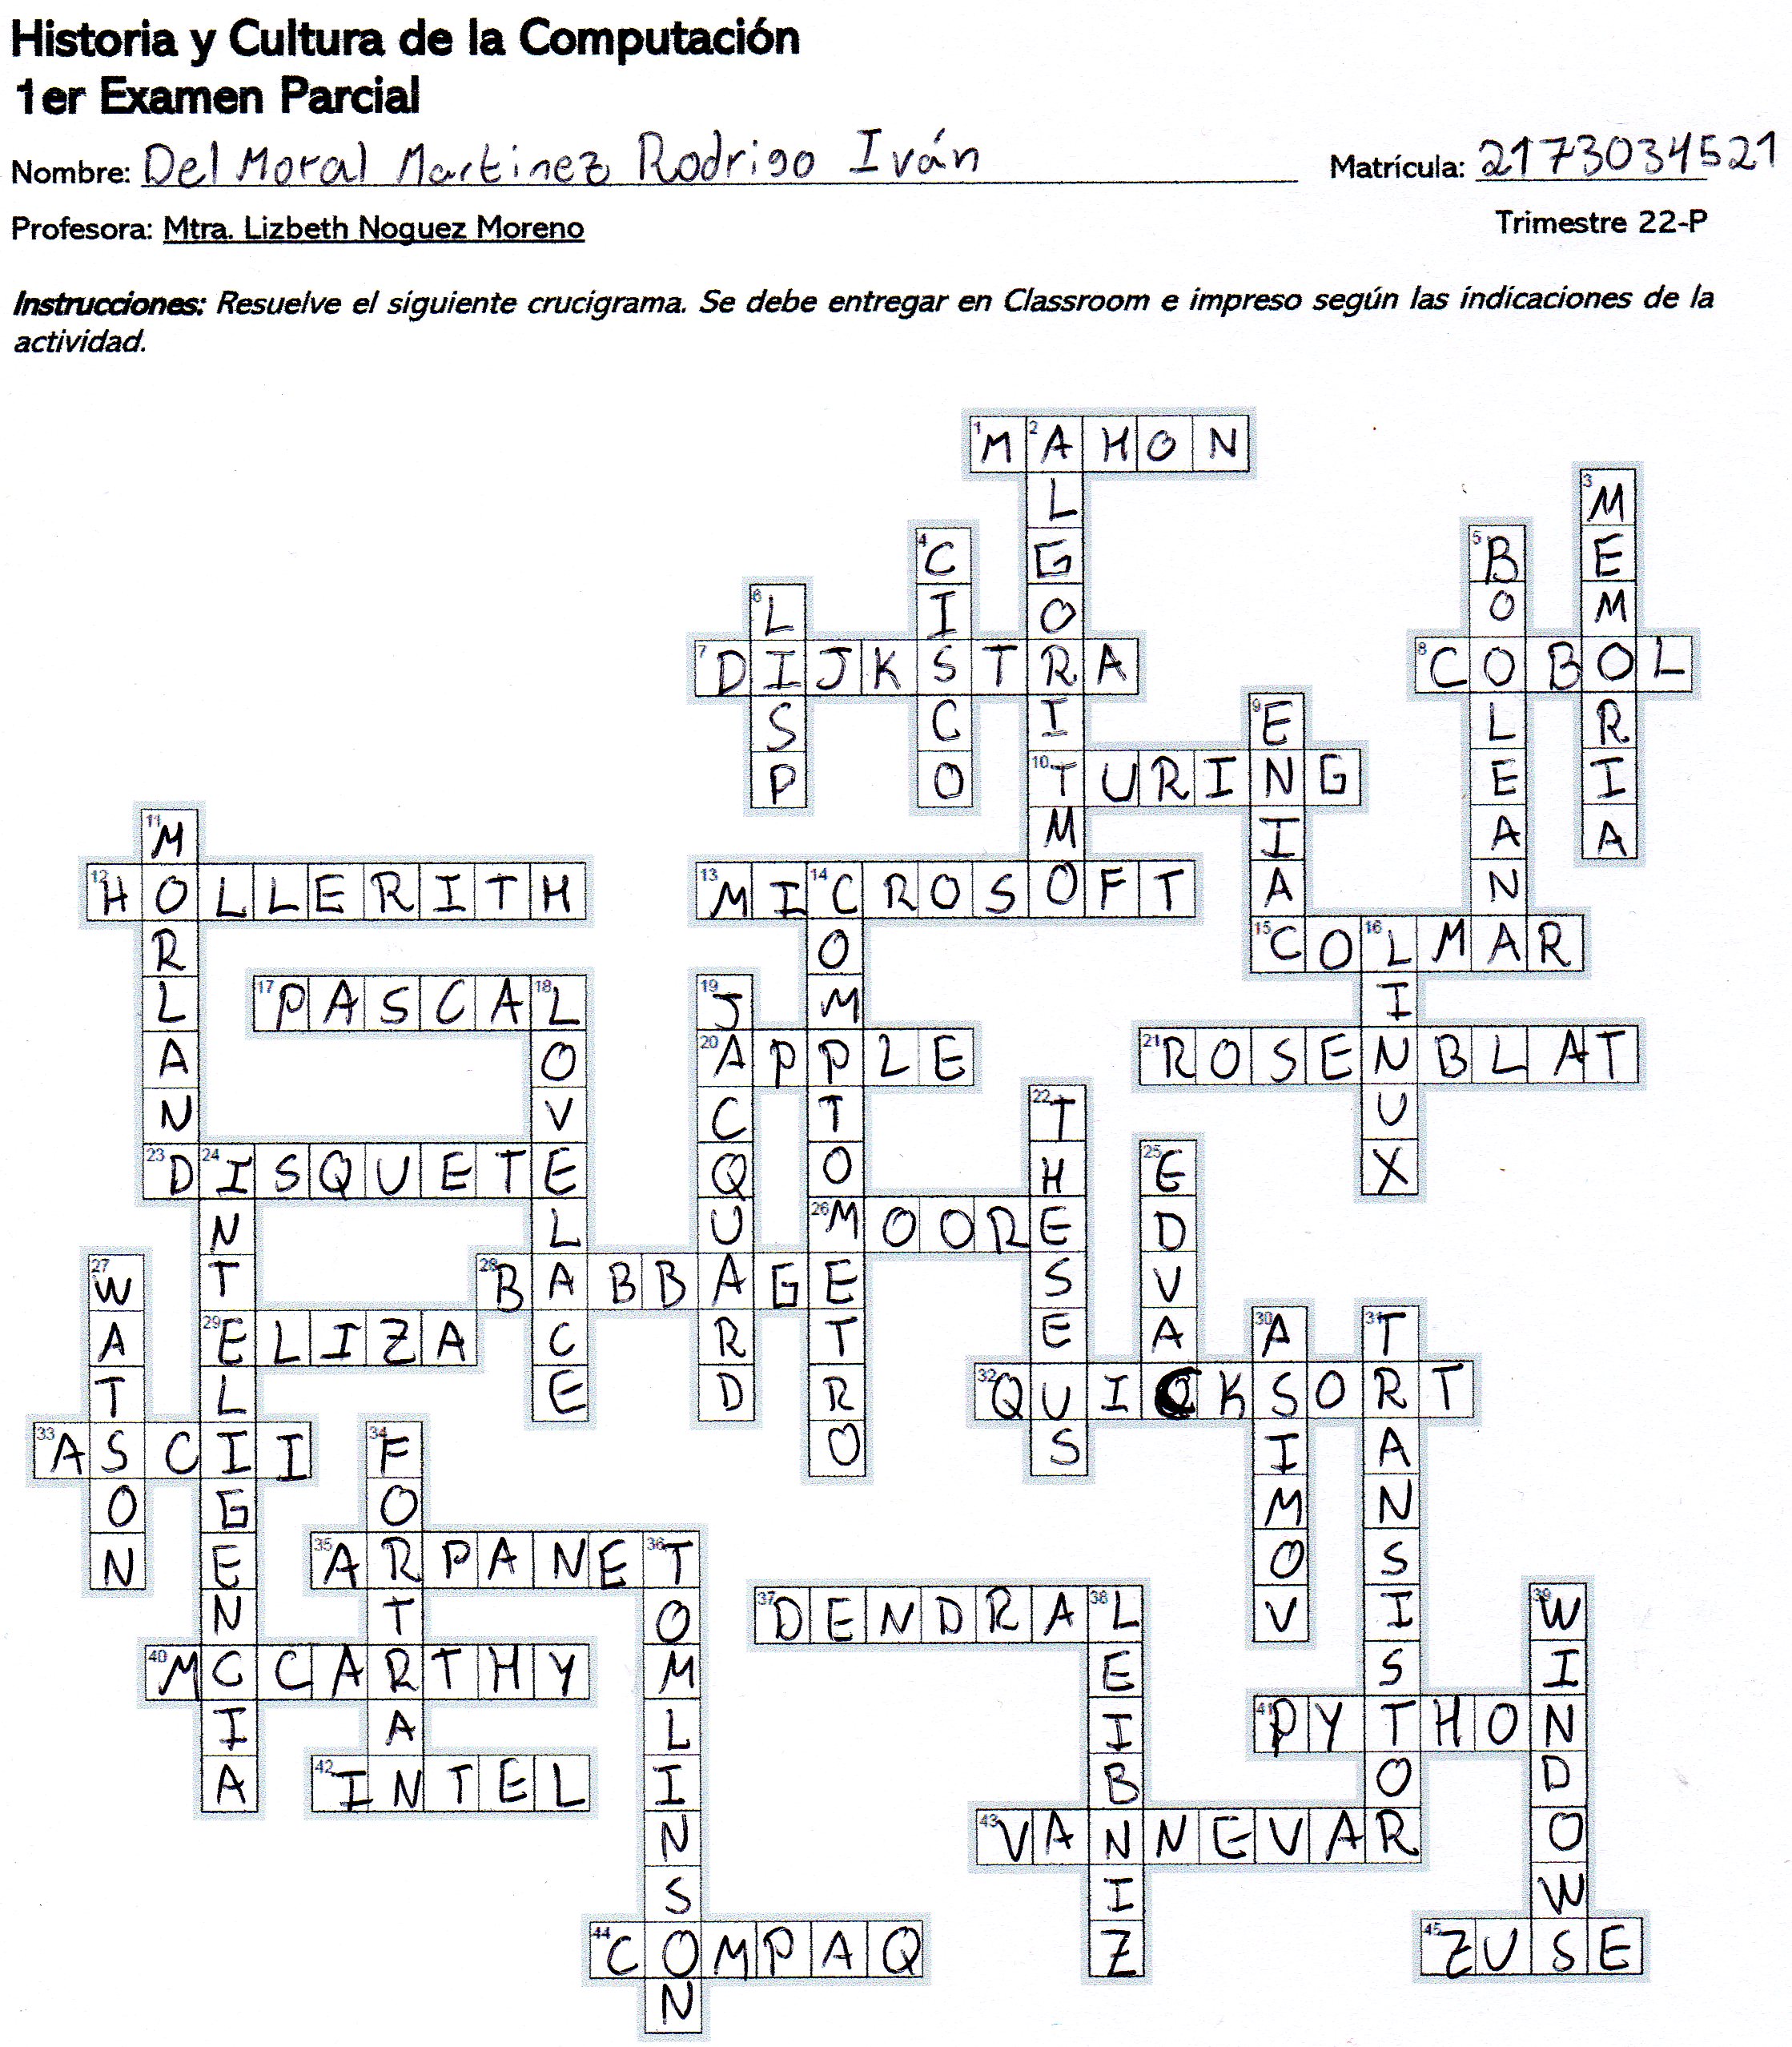 Historia y Cultura de la Computación
1er Examen Parcial
Nombre: Del Moral Martinez Rodrigo Iván Matrícula: 2173034521
Profesora: Mtra. Lizbeth Noguez Moreno Trimestre 22-P
Instrucciones: Resuelve el siguiente crucigrama. Se debe entregar en Classroom e impreso según las indicaciones de la
actividad.
1 MAHON
2 ALGORITMO
3 MEMORIA
4 CISCO
5 BOOLEANA
6 LISP
7 DIJKSTRA
8 COBOL
9 ENIAC
10 TURING
11 MORLAND
12 HOLLERITH
13 MICROSOFT
14 COMPTOMETRO
15 COLMAR
16 LINUX
17 PASCAL
18 LOVELACE
19 JACQUARD
20 APPLE
21 ROSENBLAT
22 THESEUS
23 DISQUETE
24 INTELIGENCIA
25 EDVAC
26 MOORE
27 WATSON
28 BABBAGE
29 ELIZA
30 ASIMOV
31 TRANSISTOR
32 QUICKSORT
33 ASCII
34 FORTRAN
35 ARPANET
36 TOMLINSON
37 DENDRAL
38 LEIBNIZ
39 WINDOWS
40 MCCARTHY
41 PYTHON
42 INTEL
43 VANNEVAR
44 COMPAQ
45 ZUSE